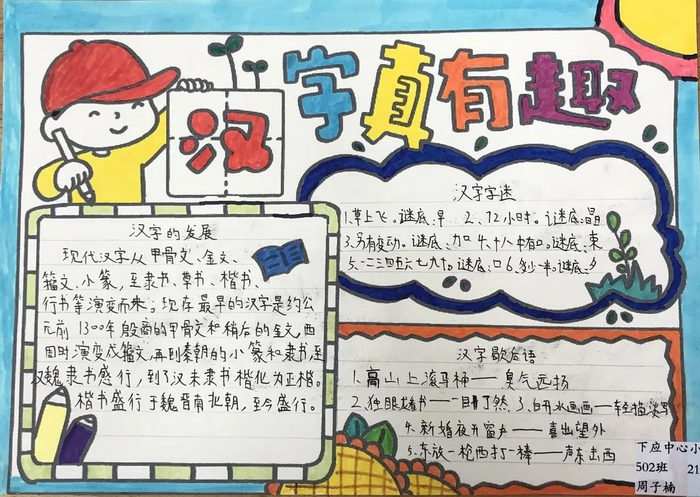 汉字真有趣
汉字的发展
现代汉字从甲骨文、金文、
籀文、小篆,至隶书、草书、楷书、
行书等演变而来。现存最早的汉字是约公
元前1300年殷商的甲骨文和稍后的金文,西
周时演变成籀文,再到秦朝的小篆和隶书,至
汉魏隶书盛行,到了汉末隶书楷化为正楷。
楷书盛行于魏晋南北朝,至今盛行。
汉字字迷
1、草上飞。谜底:早 2、12小时。谜底:
3、另有变动。谜底、加 4、十八中有口。谜底、束
5、一二三四五六七九十。谜底、口 6、多少一半。谜底、夕
汉字歇后语
1、高山上滚马桶——臭气远扬
2、独眼龙看书——一目了然、3、白开水画画——轻描淡写
4、新婚夜开窗户——喜出望外
5、东放一枪西打一棒——声东击西
下应中心小
502班 21
周子楠